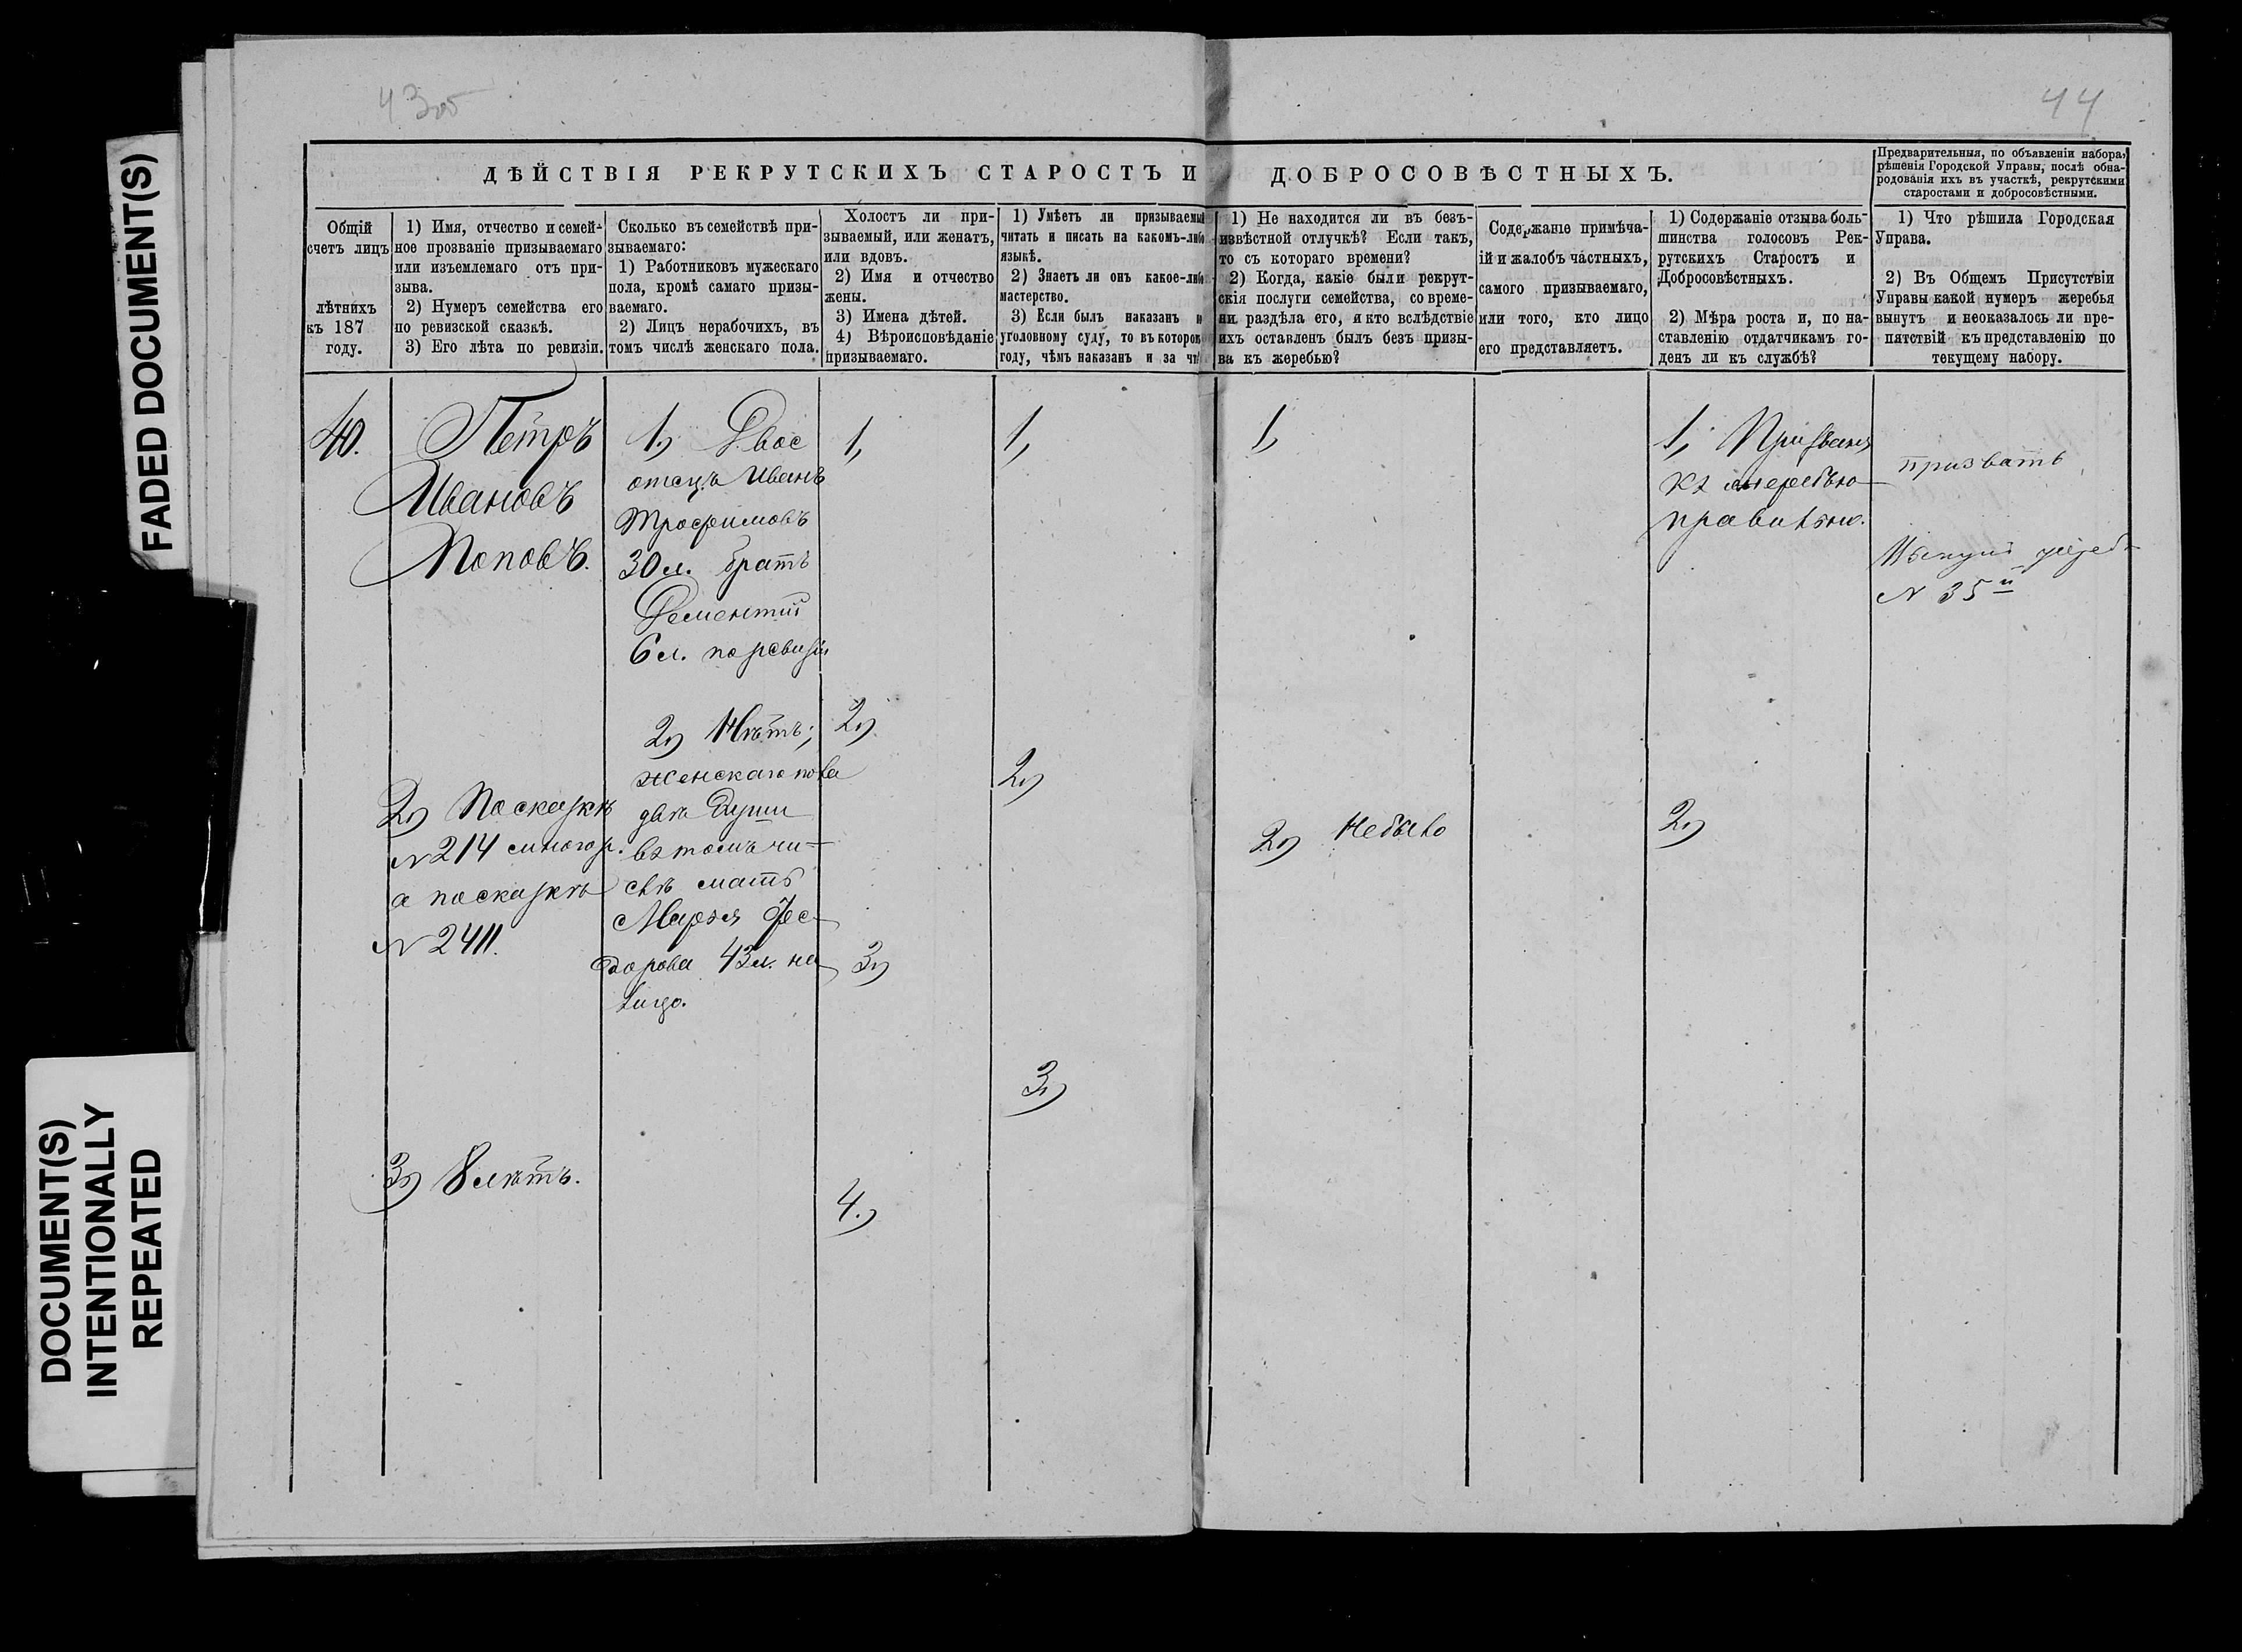 43об
44
FADED DOCUMENT(S)
DOCUMENT(S)
INTENTIONALLY
REPEATED
ДѢЙСТВІЯ РЕКРУТСКИХЪ СТАРОСТЪ И ДОБРОСОВѢСТНЫХЪ.
Предварительныя, по объявленіи набора,
рѣшенія Городской Управы, послѣ обна-
родованія ихъ въ участкѣ, рекрутскими
старостами и добросовѣстными.
Общій
счетъ лицъ
лѣтнихъ
къ 187
году.
1) Имя, отчество и семей-
ное прозваніе призываемаго
или изъемлемаго отъ при-
зыва.
2) Нумеръ семейства его
по ревизской сказкѣ.
3) Его лѣта по ревизіи.
Сколько въ семействѣ при-
зываемаго:
1) Работниковъ мужескаго
пола, кромѣ самаго призы-
ваемаго.
2) Лицъ нерабочихъ, въ
томъ числѣ женскаго пола.
Холостъ ли при-
зываемый, или женатъ,
или вдовъ.
2) Имя и отчество
жены.
3) Имена дѣтей.
4) Вѣроисповѣданіе
призываемаго.
1) Умѣетъ ли призываемый
читать и писать на какомъ-либо
языкѣ.
2) Знаетъ ли онъ какое-либо
мастерство.
3) Если былъ наказанъ
уголовному суду, то въ котор
году, чѣмъ наказанъ и за чт
1) Не находится ли въ безъ-
извѣстной отлучкѣ? Если такъ,
то съ котораго времени?
2) Когда, какіе были рекрут-
скія послуги семейства, со време-
ни раздѣла его, и кто вслѣдствіе
ихъ оставленъ былъ безъ призы-
ва къ жеребью?
Содержаніе примѣча-
ій и жалобъ частныхъ,
самого призываемаго,
или того, кто лицо
его представляетъ.
1) Содержаніе отзыва боль-
шинства голосовъ Рек-
рутскихъ Старостъ и
Добросовѣстныхъ.
2) Мѣра роста и, по на-
ставленію отдатчикамъ го-
денъ ли къ службѣ?
1) Что рѣшила Городская
Управа.
2) Въ Общемъ Присутствіи
Управы какой нумеръ жеребья
вынутъ и неоказалось ли пре-
пятствій къ представленію по
текущему набору.
40.
Петръ
Ивановъ
Поповъ.
2) По сказкѣ
N 214
а по сказкѣ
N 2411.
3) 8 лѣтъ.
1) Двое
отецъ Иванъ
Трофимовъ
30 л. братъ
Дементій
6 л. по ревизіи
2) Нѣтъ;
женскаго пола
двѣ души
въ томъ чи-
слѣ мать
Марья Фео-
дорова 43 л. на
лицо.
1,
2)
3)
4.)
1,
2)
3)
1,
2) Не было
1, Призванъ
къ жеребью
правильно.
2)
призвать
N 35й